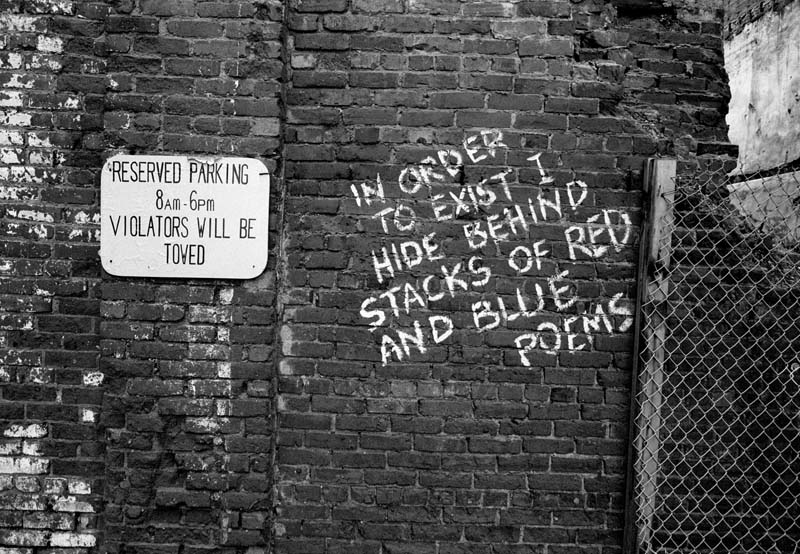 RESERVED PARKING
8AM-6PM
VIOLATORS WILL BE
TOVED
IN ORDER
TO EXIST I
HIDE BEHIND
STACKS OF RED
AND BLUE
POEMS